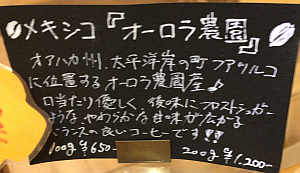 メキシコ『オーロラ農園』
オアハカ州、太平洋岸の町ファツルコ
に位置するオーロラ農園産♪
口当たり優しく、後味にフロストシュガー
ような、やわらかな甘味が広がる
バランスの良いコーヒーです!!
100g ¥650- 200g ¥1,200-